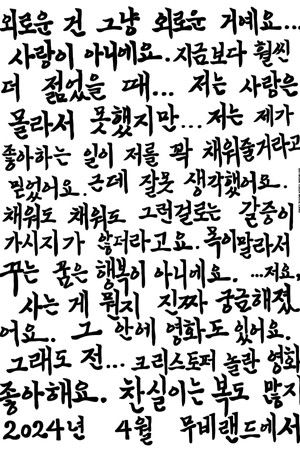 외로운 건 그냥 외로운 거예요...
사랑이 아니에요. 지금보다 훨씬
더 젊었을 때... 저는 사랑은
몰라서 못했지만... 저는 제가
좋아하는 일이 저를 꽉 채워줄거라고
믿었어요. 근데 잘못 생각했어요.
채워도 채워도 그런걸로는 갈증이
가시지가 않더라고요. 목이말라서
꾸는 꿈은 행복이 아니에요. ...저요,
사는 게 뭔지 진짜 궁금해졌
어요. 그 안에 영화도 있어요.
그래도 전... 크리스토퍼 놀란 영화
좋아해요. 찬실이는 복도 많지
2024년 4월 무비랜드에서